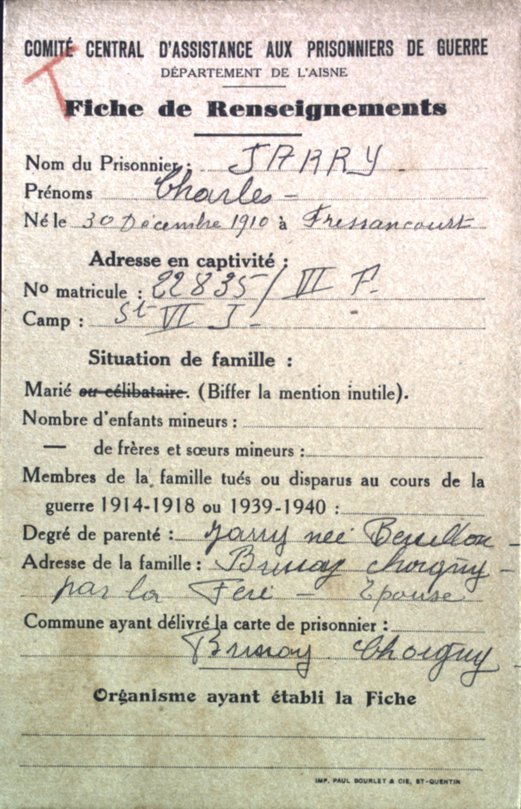 COMITÉ CENTRAL D'ASSISTANCE AUX PRISONNIERS DE GUERRE
DÉPARTEMENT DE L'AISNE
T
Fiche de Renseignements
Nom du Prisonnier : JARRY
Prénoms Charles
Né le 30 Décembre 1910 à Fressancourt
Adresse en captivité :
No matricule : 22835 / VI F
Camp : St VI J
Situation de famille :
Marié ou célibataire. (Biffer la mention inutile).
Nombre d'enfants mineurs :
— de frères et sœurs mineurs :
Membres de la famille tués ou disparus au cours de la
guerre 1914-1918 ou 1939-1940 :
Degré de parenté : Jarry née
Adresse de la famille :
par la Fère - Epouse
Commune ayant délivré la carte de prisonnier :
Organisme ayant établi la Fiche
IMP. PAUL BOURLET & CIE, ST-QUENTIN